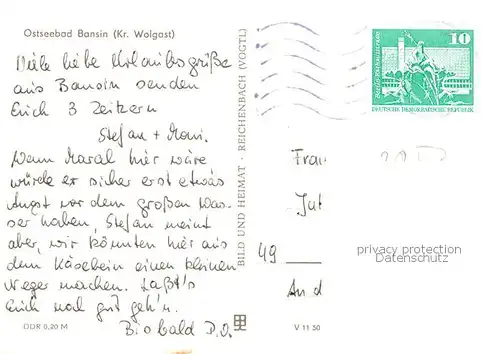 Ostseebad Bansin (Kr. Wolgast)
Viele liebe Urlaubsgrüße
aus Bansin senden
Euch 3
Stefan + Moni.
Wenn Maral hier wäre
würde er sicher erst etwas
Angst vor dem großen Was-
ser haben, Stefan meint
aber, wir könnten hier aus
dem Käsebein einen kleinen
Neger machen. Laßt's
Euch mal gut geh'n.
Bis bald D.O.
DDR 0,20 M
BILD UND HEIMAT · REICHENBACH (VOGTL)
V 11 50
10
DEUTSCHE DEMOKRATISCHE REPUBLIK
Frau
49
An d
privacy protection
Datenschutz